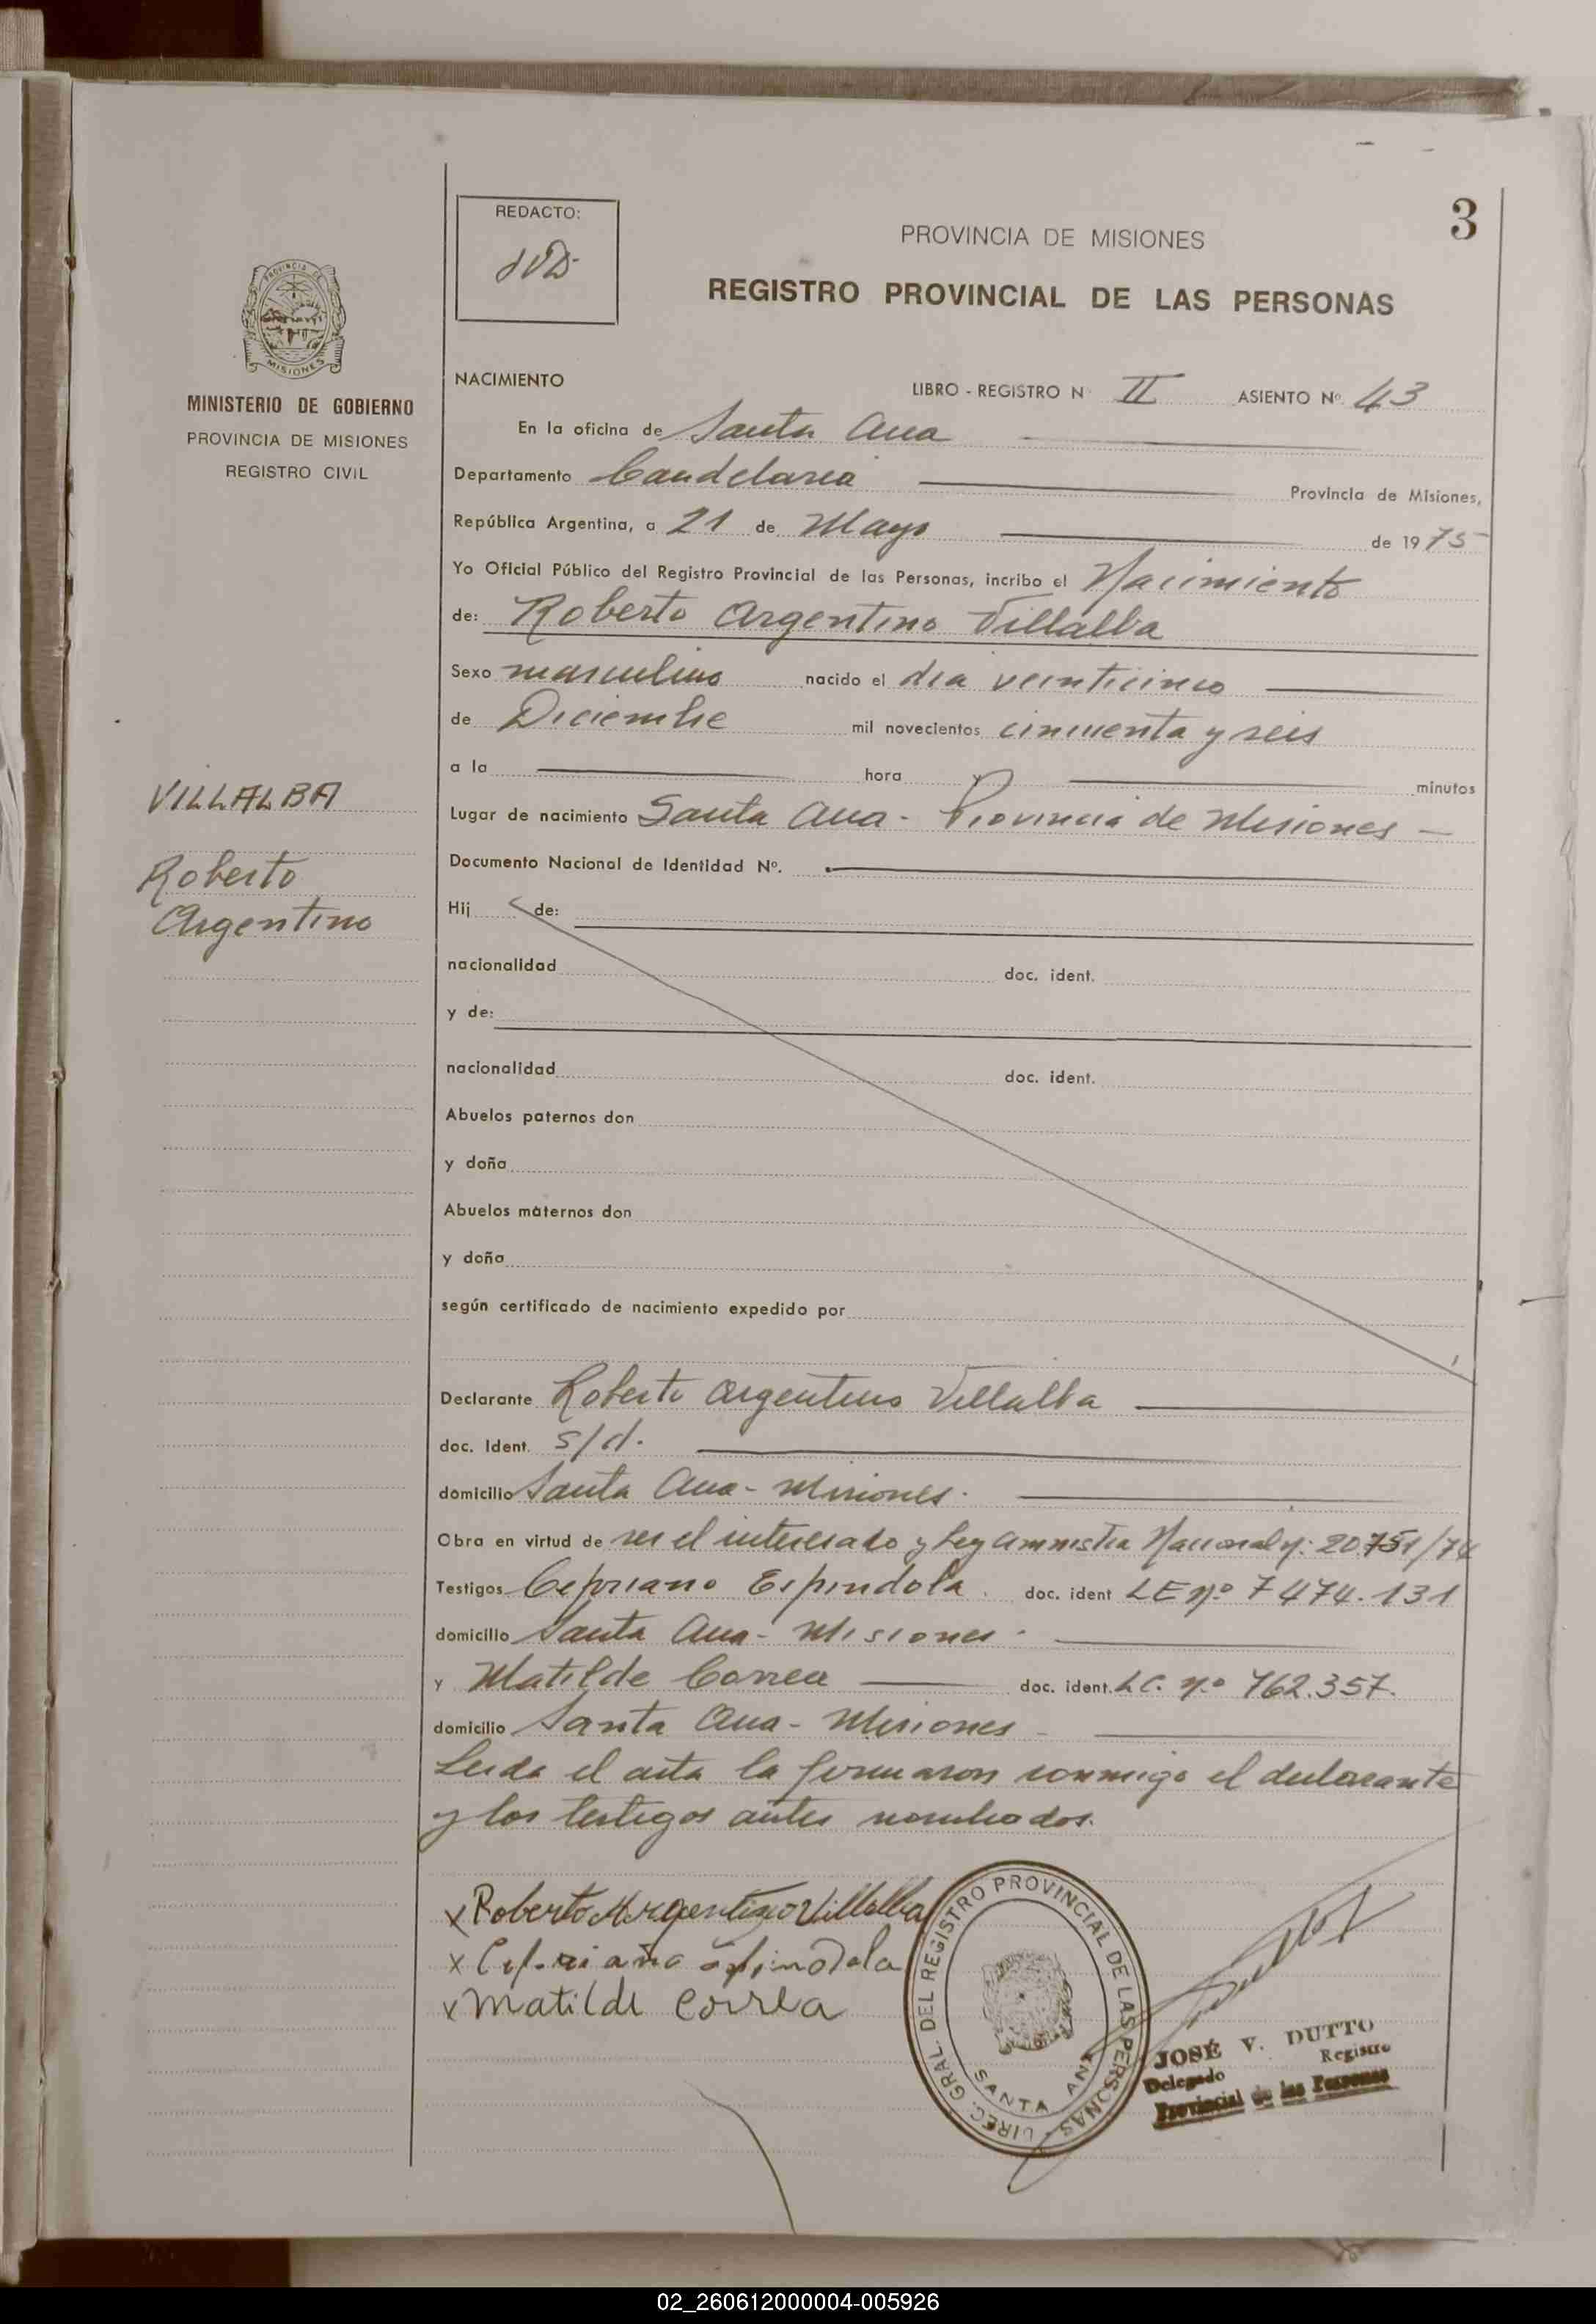 3
REDACTO:
JVD
PROVINCIA DE MISIONES
REGISTRO PROVINCIAL DE LAS PERSONAS
PROVINCIA DE
MISIONES
MINISTERIO DE GOBIERNO
PROVINCIA DE MISIONES
REGISTRO CIVIL
NACIMIENTO
LIBRO - REGISTRO N° II ASIENTO Nº. 43
En la oficina de Santa Ana
Departamento Candelaria Provincia de Misiones,
República Argentina, a 21 de Mayo de 1975
Yo Oficial Público del Registro Provincial de las Personas, incribo el Nacimiento
de: Roberto Argentino Villalba
Sexo masculino nacido el dia veinticinco
de Diciembre mil novecientos cincuenta y seis
a la hora y minutos
Lugar de nacimiento Santa Ana - Provincia de Misiones -
Documento Nacional de Identidad Nº.
VILLALBA
Roberto
Argentino
Hij de:
nacionalidad doc. ident.
y de:
nacionalidad doc. ident.
Abuelos paternos don
y doña
Abuelos maternos don
y doña
según certificado de nacimiento expedido por
Declarante Roberto Argentino Villalba
doc. Ident. s/d.
domicilio Santa Ana - Misiones.
Obra en virtud de ser el interesado y Ley Amnistia Nacional nº: 20.751/74
Testigos Cipriano Espindola. doc. ident LE nº 7474.131
domicilio Santa Ana - Misiones.
y Matilde Correa doc. ident. LC. nº 762.357.
domicilio Santa Ana - Misiones
Leida el acta la firmaron conmigo el declarante
y los testigos antes nombrados.
x Roberto Argentino Villalba
x Cipriano Espindola
x Matilde Correa
DIREC. GRAL. DEL REGISTRO PROVINCIAL DE LAS PERSONAS
SANTA ANA
JOSÉ V. DUTTO
Delegado Registro
Provincial de las Personas
02_260612000004-005926